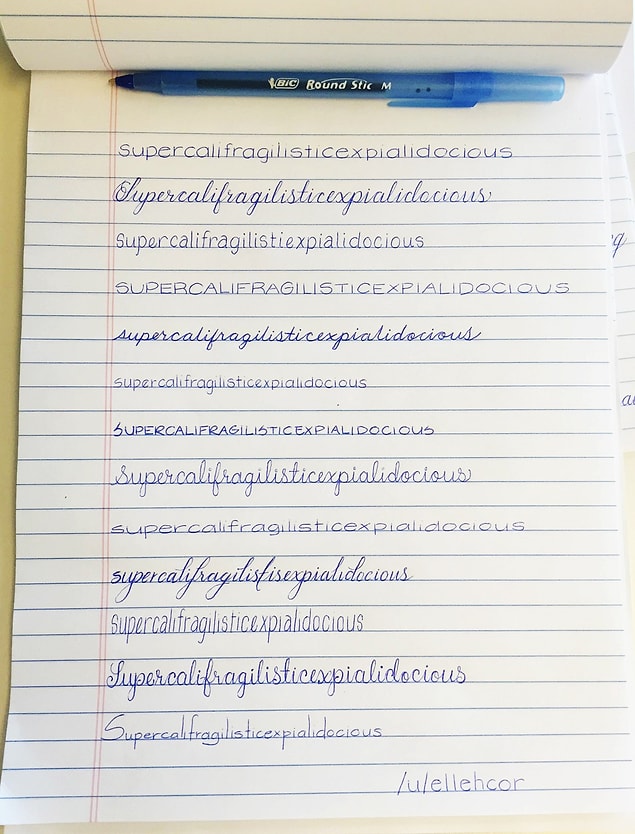 BiC Round Stic M
supercalifragilisticexpialidocious
Supercalifragilisticexpialidocious
supercalifragilistiexpialidocious
SUPERCALIFRAGILISTICEXPIALIDOCIOUS
supercalifragilisticexpialidocious
supercalifragilisticexpialidocious
SUPERCALIFRAGILISTICEXPIALIDOCIOUS
Supercalifragilisticexpialidocious
supercalifragilisticexpialidocious
supercalifragilistisexpialidocious
supercalifragilisticexpialidocious
Supercalifragilisticexpialidocious
Supercalifragilisticexpialidocious
/u/ellehcor